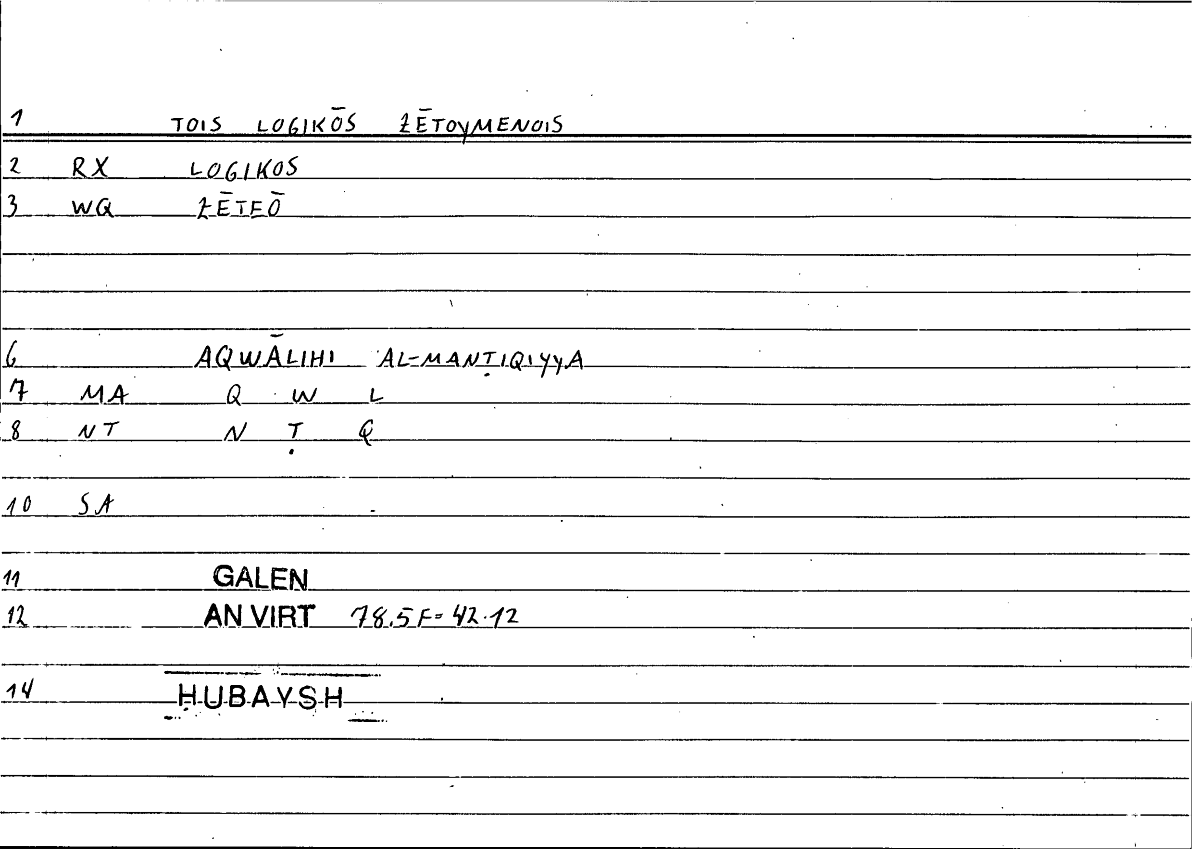 1 TOIS LOGIKŌS ZĒTOYMENOIS
2 RX LOGIKOS
3 WQ ZĒTEŌ
6 AQWĀLIHI AL-MANṬIQIYYA
7 MA Q W L
8 NT N Ṭ Q
10 SA
11 GALEN
12 AN VIRT 78.5F=42.12
14 ḤUBAYSH